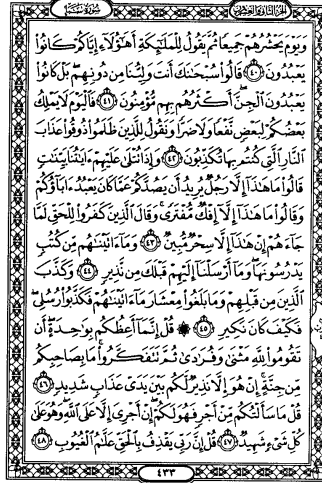 الجزء الثاني والعشرون سورة سبإ
وَيَوْمَ يَحْشُرُهُمْ جَمِيعًا ثُمَّ يَقُولُ لِلْمَلَٰٓئِكَةِ أَهَٰٓؤُلَآءِ إِيَّاكُمْ كَانُوا۟
يَعْبُدُونَ ٤٠ قَالُوا۟ سُبْحَٰنَكَ أَنتَ وَلِيُّنَا مِن دُونِهِم بَلْ كَانُوا۟
يَعْبُدُونَ ٱلْجِنَّ أَكْثَرُهُم بِهِم مُّؤْمِنُونَ ٤١ فَٱلْيَوْمَ لَا يَمْلِكُ
بَعْضُكُمْ لِبَعْضٍ نَّفْعًا وَلَا ضَرًّا وَنَقُولُ لِلَّذِينَ ظَلَمُوا۟ ذُوقُوا۟ عَذَابَ
ٱلنَّارِ ٱلَّتِى كُنتُم بِهَا تُكَذِّبُونَ ٤٢ وَإِذَا تُتْلَىٰ عَلَيْهِمْ ءَايَٰتُنَا بَيِّنَٰتٍ
قَالُوا۟ مَا هَٰذَآ إِلَّا رَجُلٌ يُرِيدُ أَن يَصُدَّكُمْ عَمَّا كَانَ يَعْبُدُ ءَابَآؤُكُمْ
وَقَالُوا۟ مَا هَٰذَآ إِلَّآ إِفْكٌ مُّفْتَرًى وَقَالَ ٱلَّذِينَ كَفَرُوا۟ لِلْحَقِّ لَمَّا
جَآءَهُمْ إِنْ هَٰذَآ إِلَّا سِحْرٌ مُّبِينٌ ٤٣ وَمَآ ءَاتَيْنَٰهُم مِّن كُتُبٍ
يَدْرُسُونَهَا وَمَآ أَرْسَلْنَآ إِلَيْهِمْ قَبْلَكَ مِن نَّذِيرٍ ٤٤ وَكَذَّبَ
ٱلَّذِينَ مِن قَبْلِهِمْ وَمَا بَلَغُوا۟ مِعْشَارَ مَآ ءَاتَيْنَٰهُمْ فَكَذَّبُوا۟ رُسُلِى
فَكَيْفَ كَانَ نَكِيرِ ٤٥ ۞ قُلْ إِنَّمَآ أَعِظُكُم بِوَٰحِدَةٍ أَن
تَقُومُوا۟ لِلَّهِ مَثْنَىٰ وَفُرَٰدَىٰ ثُمَّ تَتَفَكَّرُوا۟ مَا بِصَاحِبِكُم
مِّن جِنَّةٍ إِنْ هُوَ إِلَّا نَذِيرٌ لَّكُم بَيْنَ يَدَىْ عَذَابٍ شَدِيدٍ ٤٦
قُلْ مَا سَأَلْتُكُم مِّنْ أَجْرٍ فَهُوَ لَكُمْ إِنْ أَجْرِىَ إِلَّا عَلَى ٱللَّهِ وَهُوَ عَلَىٰ
كُلِّ شَىْءٍ شَهِيدٌ ٤٧ قُلْ إِنَّ رَبِّى يَقْذِفُ بِٱلْحَقِّ عَلَّٰمُ ٱلْغُيُوبِ ٤٨
٤٣٣